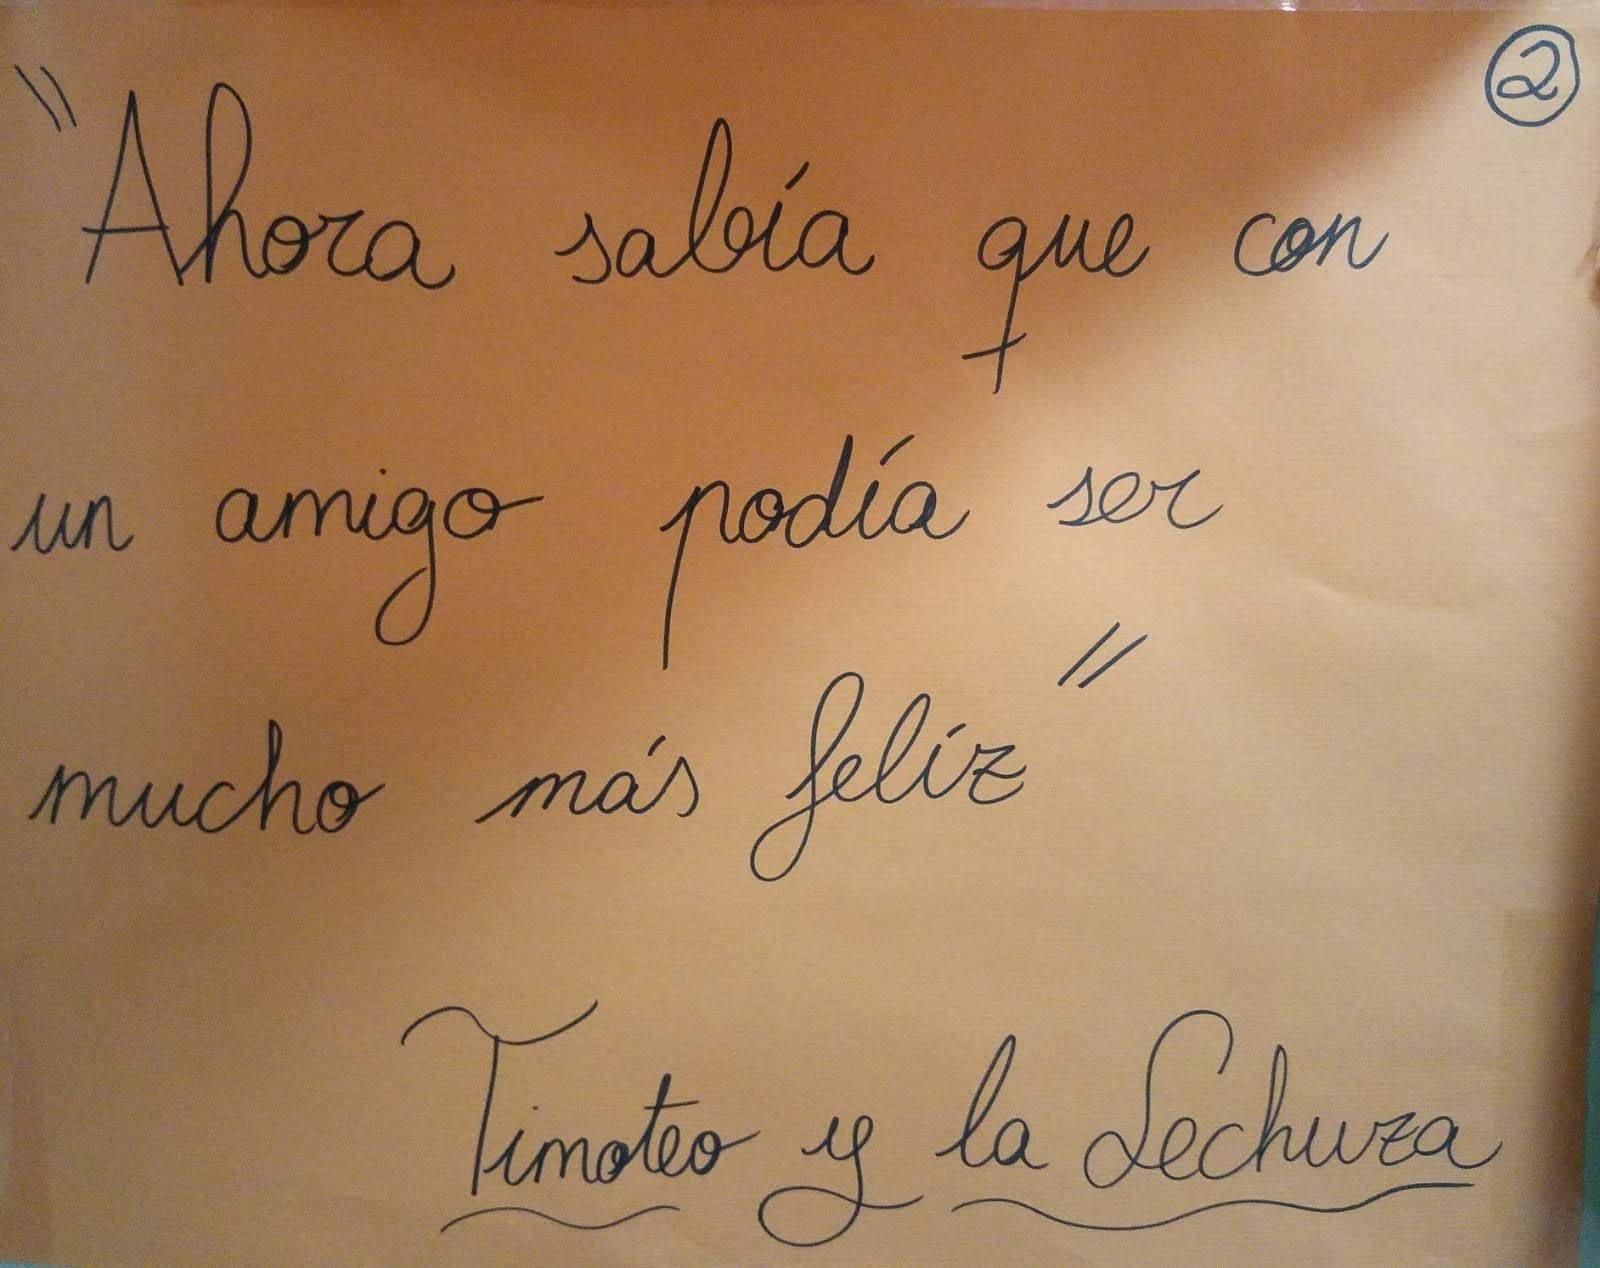 ②
"Ahora sabía que con
un amigo podía ser
mucho más felíz"
Timoteo y la Lechuza